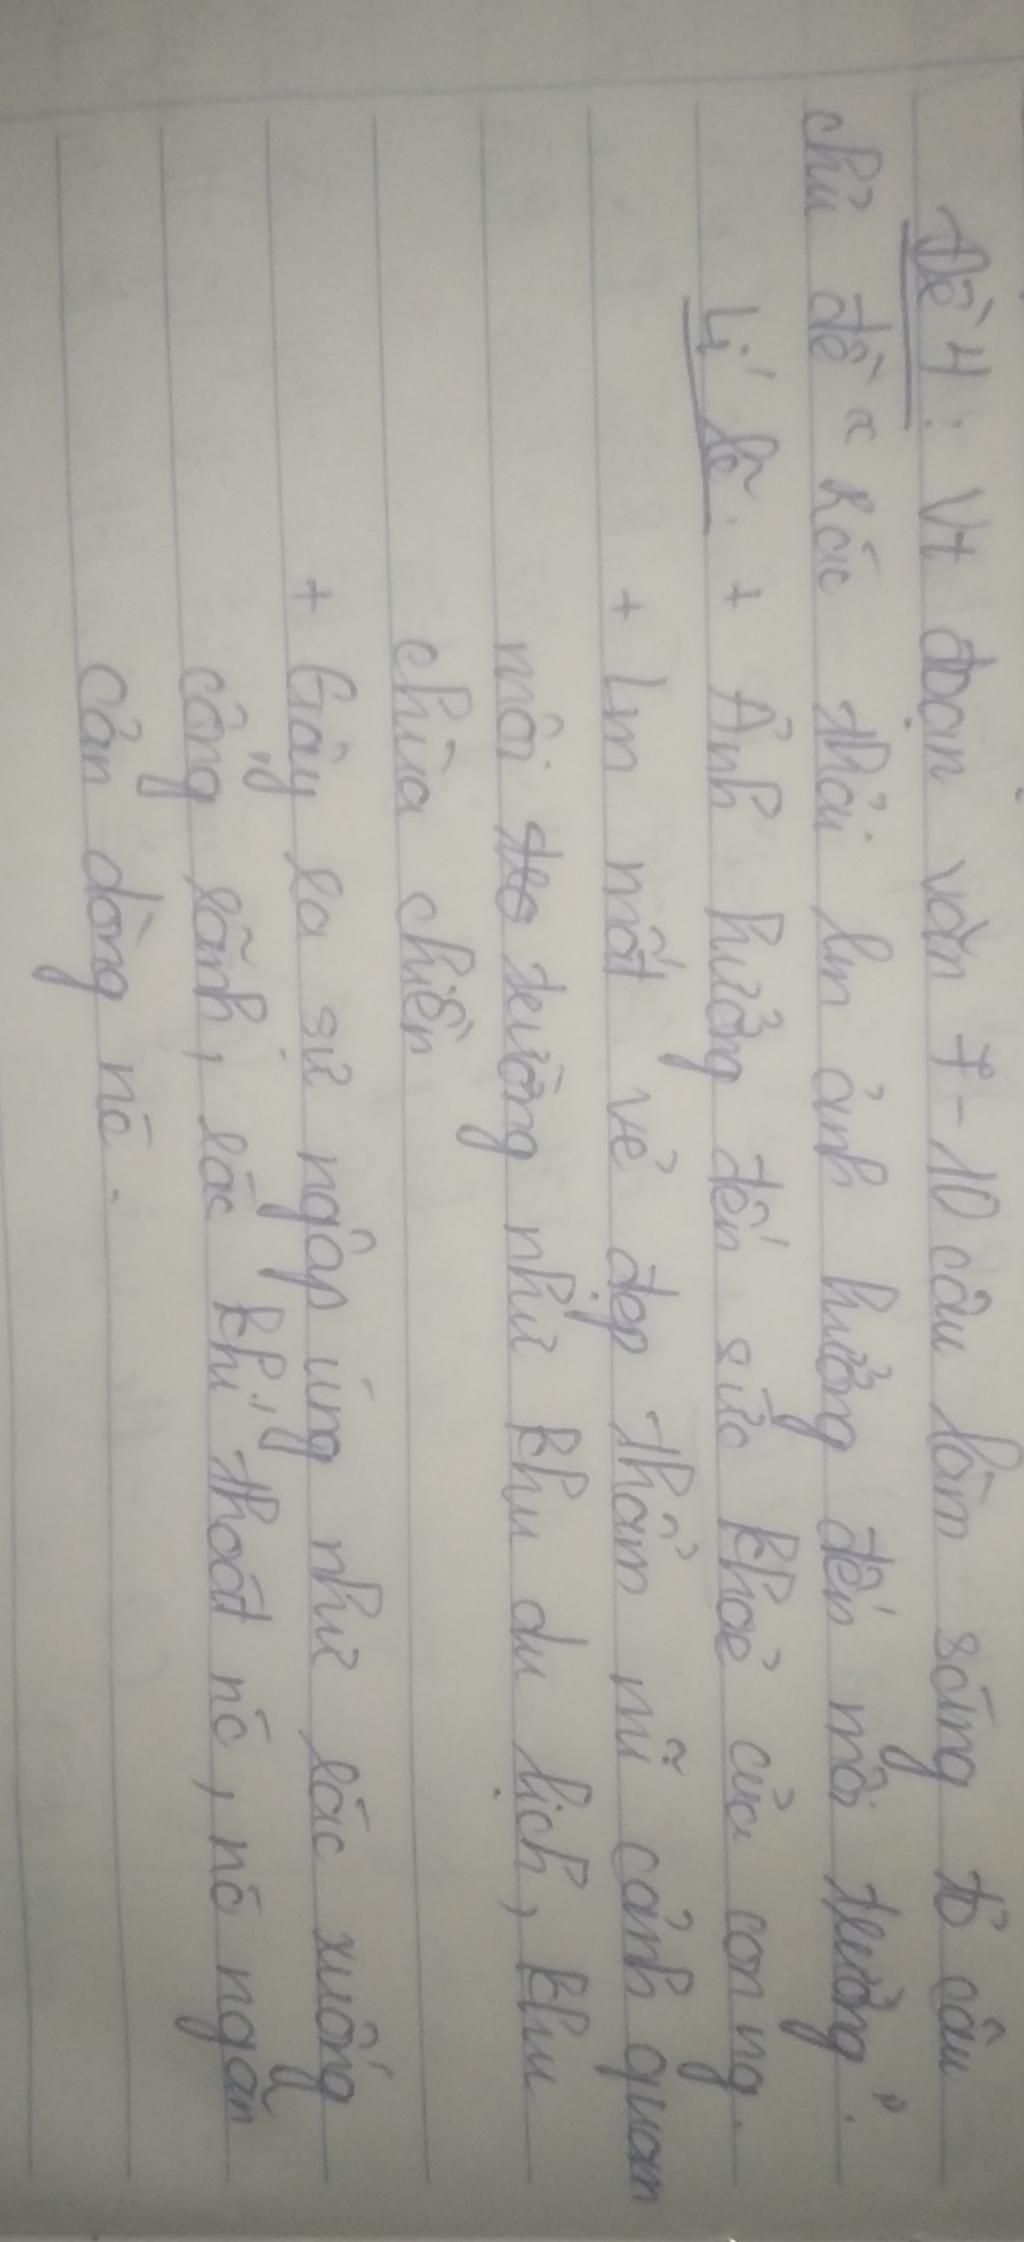 Đề 4: Vt đoạn văn 7-10 câu làm sáng tỏ câu
chủ đề "Rác thải lm ảnh hưởng đến môi trường".
Lí lẽ: + Ảnh hưởng đến sức khoẻ của con ng.
+ Lm mất vẻ đẹp thẩm mĩ cảnh quan
môi trường như khu du lịch, khu
chùa chiền
+ Gây ra sự ngập úng như rác xuống
cống rãnh, rác khi thoát nó, nó ngăn
cản dòng nó.